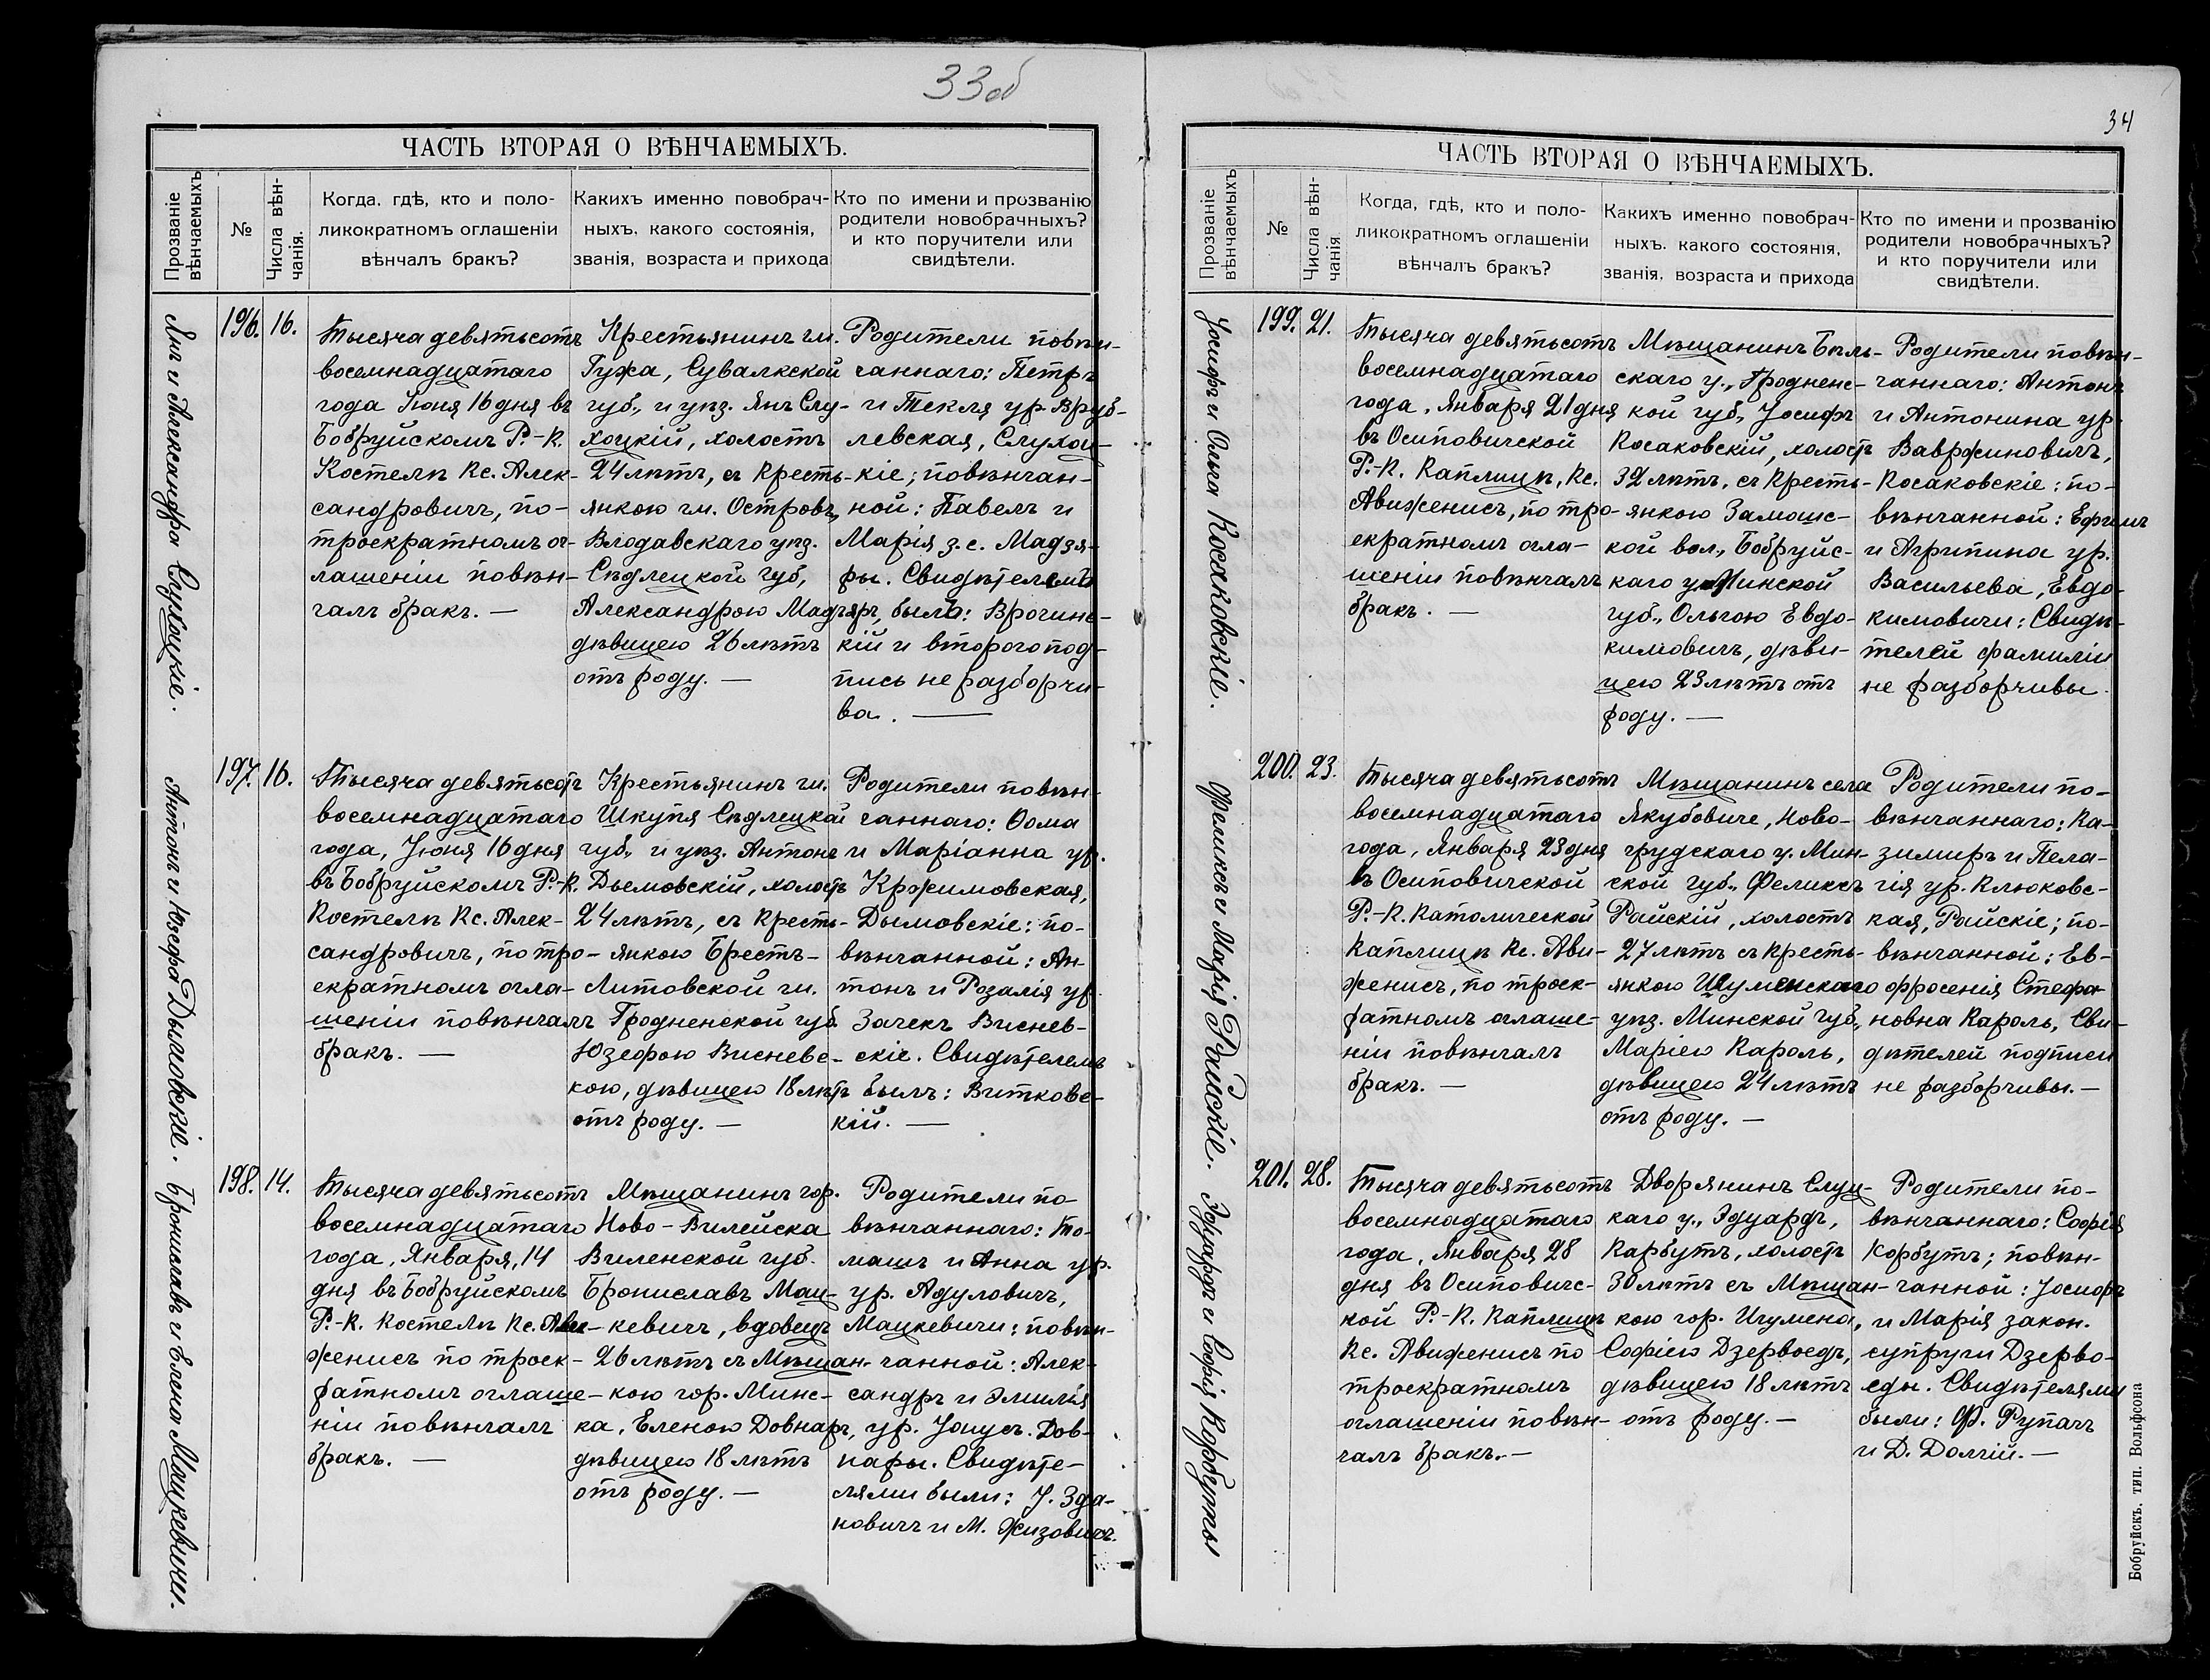 33об
ЧАСТЬ ВТОРАЯ О ВѢНЧАЕМЫХЪ.
Прозваніе
вѣнчаемыхъ
№
Числа вѣн-
чанія.
Когда, гдѣ, кто и поло-
ликократномъ оглашеніи
вѣнчалъ бракъ?
Какихъ именно новобрач-
ныхъ, какого состоянія,
званія, возраста и прихода
Кто по имени и прозванію
родители новобрачныхъ?
и кто поручители или
свидѣтели.
Янъ и Александра Слухоцкіе.
196. 16.
Тысяча девятьсотъ
восемнадцатаго
года Іюня 16 дня въ
Бобруйскомъ Р.-К.
Костелѣ Кс. Алек-
сандровичъ, по-
троекратномъ ог-
лашеніи повѣн-
чалъ бракъ. —
Крестьянинъ гм.
Гужа, Сувалкской
губ., и уѣз. Янъ Слу-
хоцкій, холостъ
24 лѣтъ, съ кресть-
янкою гм. Островъ,
Влодавскаго уѣз.
Сѣдлецкой губ,
Александрою Мадзяръ,
дѣвицею 26 лѣтъ
отъ роду. —
Родители повѣн-
чаннаго: Петръ
и Текля ур. Вруб-
левская, Слухоц-
кіе; повѣнчан-
ной: Павелъ и
Марія з. с. Мадзя-
ры. Свидѣтелемъ
былъ: Врочинс-
кій и второго под-
пись не разборчи-
ва. —
Антонъ и Юзефа Дымовскіе.
197. 16.
Тысяча девятьсотъ
восемнадцатаго
года, Іюня 16 дня
въ Бобруйскомъ Р.-К.
Костелѣ Кс. Алек-
сандровичъ, по тро-
екратномъ огла-
шеніи повѣнчалъ
бракъ. —
Крестьянинъ гм.
Шкупя Сѣдлецкой
губ., и уѣз. Антонъ
Дымовскій, холостъ
24 лѣтъ, съ кресть-
янкою Брестъ-
Литовской гм.
Гродненской губ.
Юзефою Висневс-
кою, дѣвицею 18 лѣтъ
отъ роду. —
Родители повѣн-
чаннаго: Ѳома
и Маріанна ур.
Кржимовская,
Дымовскіе: по-
вѣнчанной: Ан-
тонъ и Розалія ур.
Зачекъ Виснев-
скіе. Свидѣтелемъ
былъ: Витковс-
кій. —
Брониславъ и Елена Мацкевичи.
198. 14.
Тысяча девятьсотъ
восемнадцатаго
года, Января, 14
дня въ Бобруйскомъ
Р.-К. Костелѣ Кс. Ави-
женисъ по троек-
ратномъ оглаше-
ніи повѣнчалъ
бракъ. —
Мѣщанинъ гор.
Ново-Вилейска
Виленской губ.
Брониславъ Мац-
кевичъ, вдовецъ
26 лѣтъ съ Мѣщан-
кою гор. Минс-
ка, Еленою Довнаръ,
дѣвицею 18 лѣтъ
отъ роду. —
Родители по-
вѣнчаннаго: То-
машъ и Анна ур.
ур. Адуловичъ,
Мацкевичи: повѣн-
чанной: Алек-
сандръ и Эмилія
ур. Янусъ. Дов-
нары. Свидѣте-
лями были: І. Зда-
новичъ и М. Жизовичъ.
34
ЧАСТЬ ВТОРАЯ О ВѢНЧАЕМЫХЪ.
Прозваніе
вѣнчаемыхъ
№
Числа вѣн-
чанія
Когда, гдѣ, кто и поло-
ликократномъ оглашеніи
вѣнчалъ бракъ?
Какихъ именно повобрач-
ныхъ. какого состоянія,
званія, возраста и прихода
Кто по имени и прозванію
родители новобрачныхъ?
и кто поручители или
свидѣтели.
Іосифъ и Ольга Косаковскіе.
199. 21.
Тысяча девятьсотъ
восемнадцатаго
года, Января 21 дня
въ Осиповичской
Р.-К. Каплицѣ, Кс.
Авиженисъ, по тро-
екратномъ огла-
шеніи повѣнчалъ
бракъ. —
Мѣщанинъ Бѣль-
скаго у., Гродненс-
кой губ., Іосифъ
Косаковскій, холостъ
32 лѣтъ, съ кресть-
янкою Замошс-
кой вол., Бобруйс-
каго у. Минской
губ., Ольгою Евдо-
кимовичъ, дѣви-
цею 23 лѣтъ отъ
роду. —
Родители повѣн-
чаннаго: Антонъ
и Антонина ур.
Вавржиновичъ,
Косаковскіе: по-
вѣнчанной: Ефимъ
и Агрипина ур.
Васильева, Евдо-
кимовичи: Свидѣ-
телей фамиліи
не разборчивы.
Феликсъ и Марія Райскіе.
200. 23.
Тысяча девятьсотъ
восемнадцатаго
года, Января 23 дня
въ Осиповичской
Р.-К. Католической
Каплицѣ Кс. Ави-
женисъ, по троек-
ратномъ оглаше-
ніи повѣнчалъ
бракъ. —
Мѣщанинъ села
Якубовиче, Ново-
грудскаго у. Мин-
ской губ., Феликсъ
Райскій, холостъ
27 лѣтъ съ кресть-
янкою Игуменскаго
уѣз. Минской губ.,
Маріею Кароль,
дѣвицею 24 лѣтъ
отъ роду. —
Родители по-
вѣнчаннаго: Ка-
зимиръ и Пела-
гія ур. Клюковс-
кая, Райскіе; по-
вѣнчанной: Ев-
фросенія Стефа-
новна Кароль, Сви-
дѣтелей подписи
не разборчивы. —
Эдуардъ и Софія Корбуты
201. 28.
Тысяча девятьсотъ
восемнадцатаго
года, Января 28
дня въ Осиповичс-
кой Р.-К. Каплицѣ
Кс. Авиженисъ по
троекратномъ
оглашеніи повѣн-
чалъ бракъ. —
Дворянинъ Слуц-
каго у., Эдуардъ,
Карбутъ, холостъ
30 лѣтъ съ Мѣщан-
кою гор. Игумена,
Софіею Дзервоедъ,
дѣвицею 18 лѣтъ
отъ роду. —
Родители по-
вѣнчаннаго: Софія
Корбутъ; повѣн-
чанной: Іосифъ
и Марія закон.
супруги Дзерво-
еды. Свидѣтелями
были: Ф. Рупачъ
и Д. Долгій. —
Бобруйскъ. тип. Вольфсона